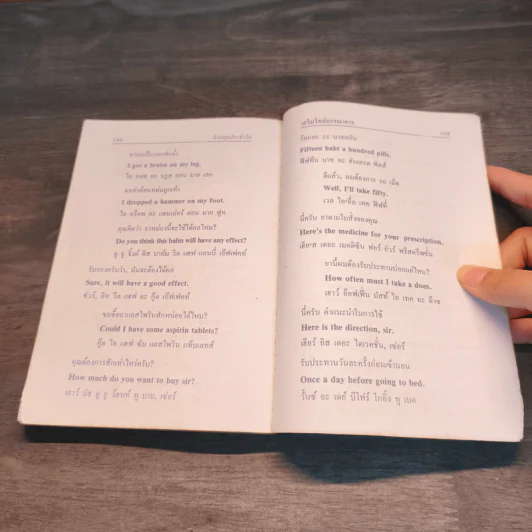 ขาผมเป็นรอยฟกช้ำ
I got a bruise on my leg.
ไอ กอท อะ บรูส ออน มาย เลก
ผมทำค้อนหล่นถูกเท้า
I dropped a hammer on my foot.
ไอ ดร็อพ อะ แฮมเม่อร์ ออน มาย ฟุท
คุณคิดว่า ยาหม่องนี้จะใช้ได้ผลไหม?
Do you think this balm will have any effect?
ดู ยู ธิ้งค์ ดิส บาล์ม วิล แฮฟ แอนนี่ เอ๊ฟเฟคท์
รับรองครับว่า, มันจะต้องได้ผล
Sure, it will have a good effect.
ชัวร์, อิท วิล แฮฟ อะ กู๊ด เอ๊ฟเฟคท์
ขอซื้อยาแอสไพรินสักหน่อยได้ไหม?
Could I have some aspirin tablets?
กู๊ด ไอ แฮฟ ซัม แอสไพริน แท็บเลทส์
คุณต้องการสักเท่าไหร่ครับ?
How much do you want to buy sir?
ฮาว มัช ดู ยู ว้อนท์ ทู บาย, เซ่อร์
เสริมวิทย์บรรณาคาร
ร้อยละ 15 บาทครับ
Fifteen baht a hundred pills.
ฟิฟทีน บาท อะ ฮันเดรด พิลส์
ดีแล้ว, ผมต้องการ ๕๐ เม็ด
Well, I'll take fifty.
เวล ไอ'ลิ้ล เทค ฟิฟตี้
นี่ครับ ยาตามใบสั่งของคุณ
Here's the medicine for your prescription.
เฮียร์ส เดอะ เมดดิซิน ฟอร์ ยัวร์ พริสคริพชั่น
ยานี้ผมต้องรับประทานบ่อยแค่ไหน?
How often must I take a does.
ฮาว อ๊อฟเฟิ่น มัสท์ ไอ เทค อะ โดซ
นี่ครับ คำแนะนำในการใช้
Here is the direction, sir.
เฮียร์ อิส เดอะ ไดเรคชั่น, เซ่อร์
รับประทานวันละครั้งก่อนเข้านอน
Once a day before going to bed.
วั้นซ์ อะ เดย์ บีโฟร์ โกอิ้ง ทู เบด